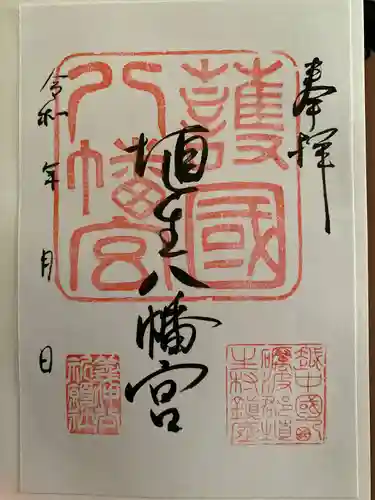 奉拝
護國
八幡宮
埴生八幡宮
令和 年 月 日
越中國礪
波郡埴
生村鎮座